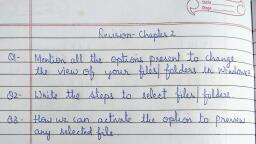 Date
Page
Revision- Chapter 2
Q1- Mention all the options present to change
the view of your files/folders in windows?
Q2- Write the steps to select files/folders
Q3- How we can activate the option to preview
any selected file.